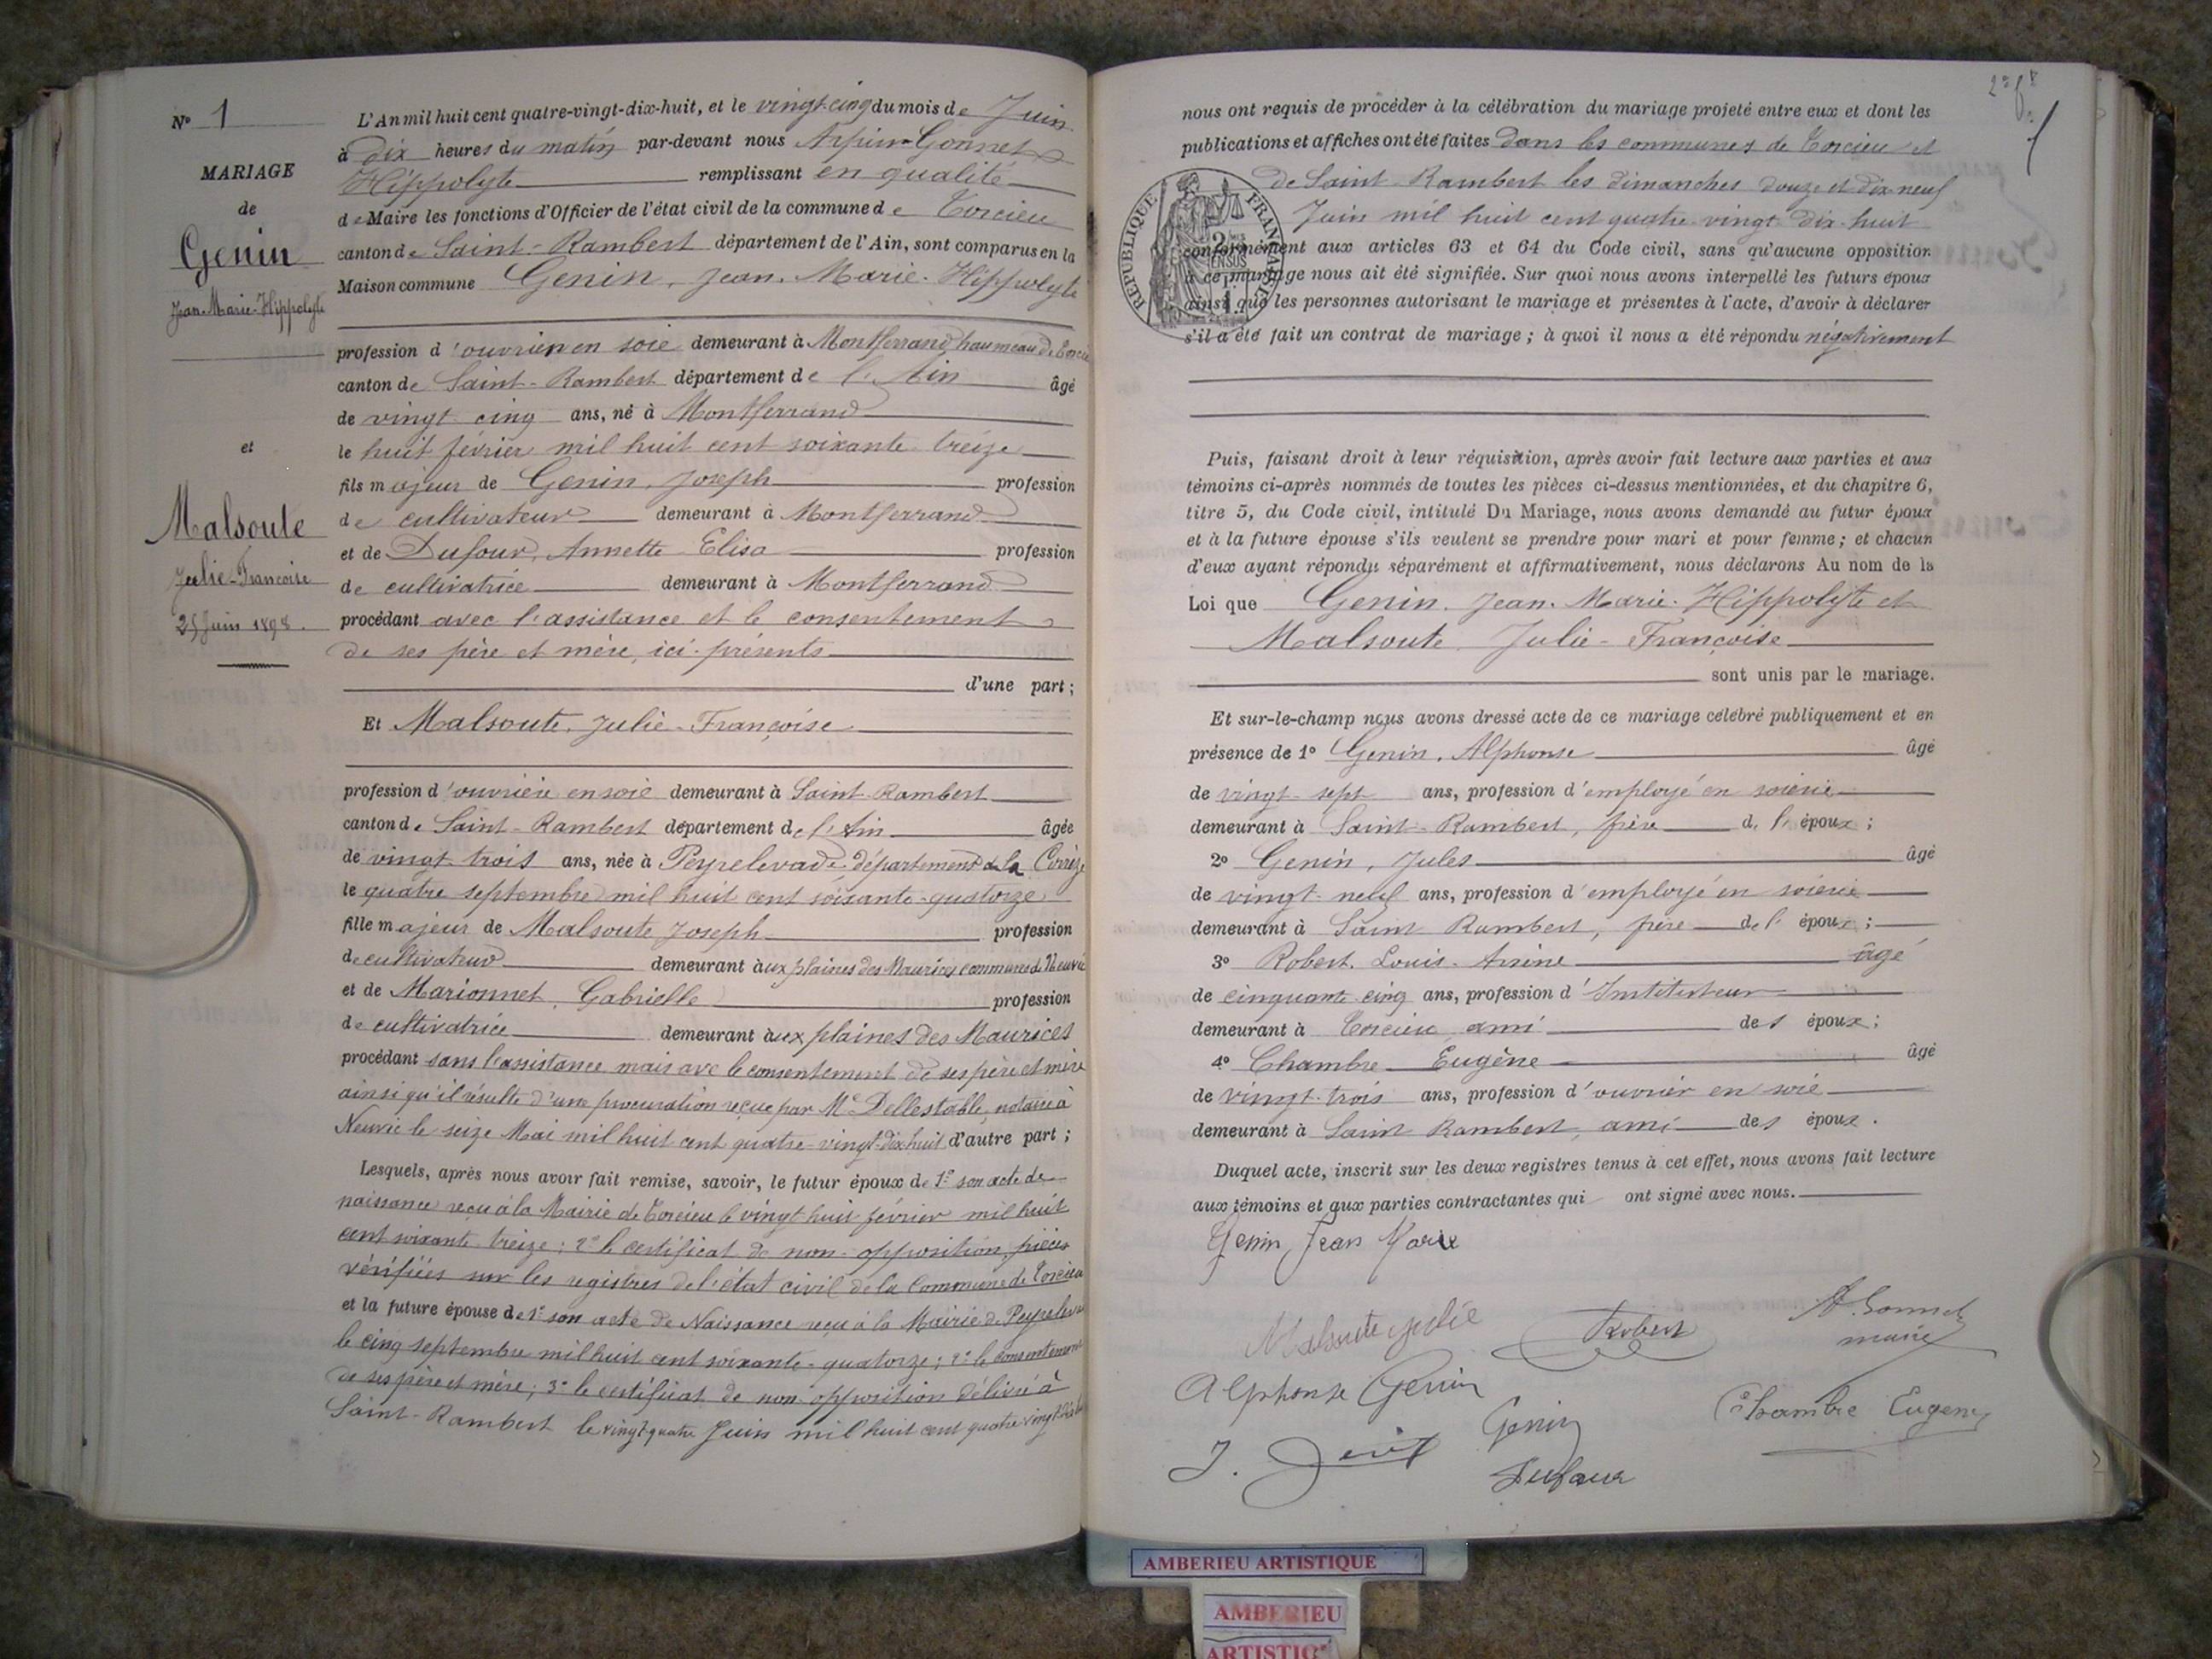 N° 1
MARIAGE
de
Genin
Jean-Marie-Hippolyte
et
Malsoute
Julie-Françoise
25 Juin 1898.
L'An mil huit cent quatre-vingt-dix-huit, et le vingt-cinq du mois de Juin
à dix heures du matin par-devant nous Arpin-Gonnet
Hippolyte remplissant en qualité
de Maire les fonctions d'Officier de l'état civil de la commune de Torcieu
canton de Saint-Rambert département de l'Ain, sont comparus en la
Maison commune Genin, Jean-Marie-Hippolyte
profession d'ouvrier en soie demeurant à Montferrand, haumeau de Torcieu
canton de Saint-Rambert département de l'Ain âgé
de vingt cinq ans, né à Montferrand
le huit février mil huit cent soixante treize
fils majeur de Genin, Joseph profession
de cultivateur demeurant à Montferrand
et de Dufour, Annette-Elisa profession
de cultivatrice demeurant à Montferrand
procédant avec l'assistance et le consentement
de ses père et mère, ici-présents
d'une part;
Et Malsoute, Julie-Françoise
profession d'ouvrière en soie demeurant à Saint-Rambert
canton de Saint-Rambert département de l'Ain âgée
de vingt trois ans, née à Peyrelevade département de la Corrèze
le quatre septembre mil huit cent soixante-quatorze
fille majeur de Malsoute Joseph profession
de cultivateur demeurant aux plaines des Maurices commune de Neuvic
et de Marionnet, Gabrielle profession
de cultivatrice demeurant aux plaines des Maurices
procédant sans l'assistance mais avc le consentement de ses père et mère
ainsi qu'il résulte d'une procuration reçue par Me Dellestable, notaire à
Neuvic le seize Mai mil huit cent quatre-vingt-dix huit d'autre part;
Lesquels, après nous avoir fait remise, savoir, le futur époux de 1° son acte de
naissance reçu à la Mairie de Torcieu le vingt huit février mil huit
cent soixante-treize; 2° le certificat de non-opposition, pièces
vérifiées sur les registres de l'état civil de la Commune de Torcieu
et la future épouse de 1° son acte de Naissance reçu à la Mairie de Peyrelevade
le cinq septembre mil huit cent soixante-quatorze; 2° le consentement
de ses père et mère; 3° le certificat de non-opposition délivré à
Saint-Rambert le vingt-quatre Juin mil huit cent quatre vingt-dix huit
nous ont requis de procéder à la célébration du mariage projeté entre eux et dont les
publications et affiches ont été faites dans les communes de Torcieu et
de Saint-Rambert les dimanches douze et dix neuf
Juin mil huit cent quatre-vingt-dix-huit
REPUBLIQUE FRANÇAISE
conformément aux articles 63 et 64 du Code civil, sans qu'aucune opposition
à ce mariage nous ait été signifiée. Sur quoi nous avons interpellé les futurs époux
ainsi que les personnes autorisant le mariage et présentes à l'acte, d'avoir à déclarer
s'il a été fait un contrat de mariage; à quoi il nous a été répondu négativement
Puis, faisant droit à leur réquisition, après avoir fait lecture aux parties et aux
témoins ci-après nommés de toutes les pièces ci-dessus mentionnées, et du chapitre 6,
titre 5, du Code civil, intitulé Du Mariage, nous avons demandé au futur époux
et à la future épouse s'ils veulent se prendre pour mari et pour femme; et chacun
d'eux ayant répondu séparément et affirmativement, nous déclarons Au nom de la
Loi que Genin, Jean-Marie-Hippolyte et
Malsoute, Julie-Françoise
sont unis par le mariage.
Et sur-le-champ nous avons dressé acte de ce mariage célébré publiquement et en
présence de 1° Genin, Alphonse âgé
de vingt-sept ans, profession d'employé en soierie
demeurant à Saint-Rambert, frère de l'époux;
2° Genin, Jules âgé
de vingt-neuf ans, profession d'employé en soierie
demeurant à Saint Rambert, frère de l'époux;
3° Robert, Louis- âgé
de cinquante-cinq ans, profession d'Instituteur
demeurant à Torcieu, ami des époux;
4° Chambre Eugène âgé
de vingt-trois ans, profession d'ouvrier en soie
demeurant à Saint Rambert, ami des époux.
Duquel acte, inscrit sur les deux registres tenus à cet effet, nous avons fait lecture
aux témoins et aux parties contractantes qui ont signé avec nous.
Genin Jean Marie
Malsoute Julie
Robert
A. Gonnet
maire
Alphonse Genin
Genin
Chambre Eugene
J. Genin
Dufour
AMBERIEU ARTISTIQUE
AMBERIEU
ARTISTIQ